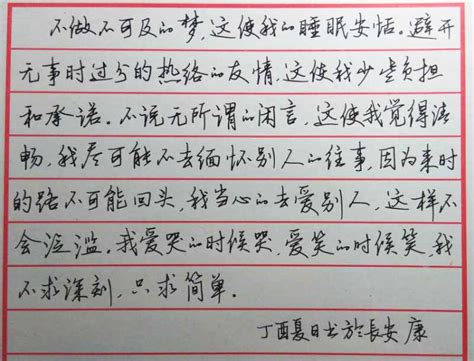 不做不可及的梦，这使我的睡眠安恬。避开
无事时过分的热络的友情，这使我少些负担
和承诺。不说无所谓的闲言，这使我觉得清
畅，我尽可能不去缅怀别人的往事，因为来时
的路不可能回头，我当心的去爱别人，这样不
会泛滥。我爱哭的时候哭，爱笑的时候笑，我
不求深刻，只求简单。
丁酉夏日书於長安 康